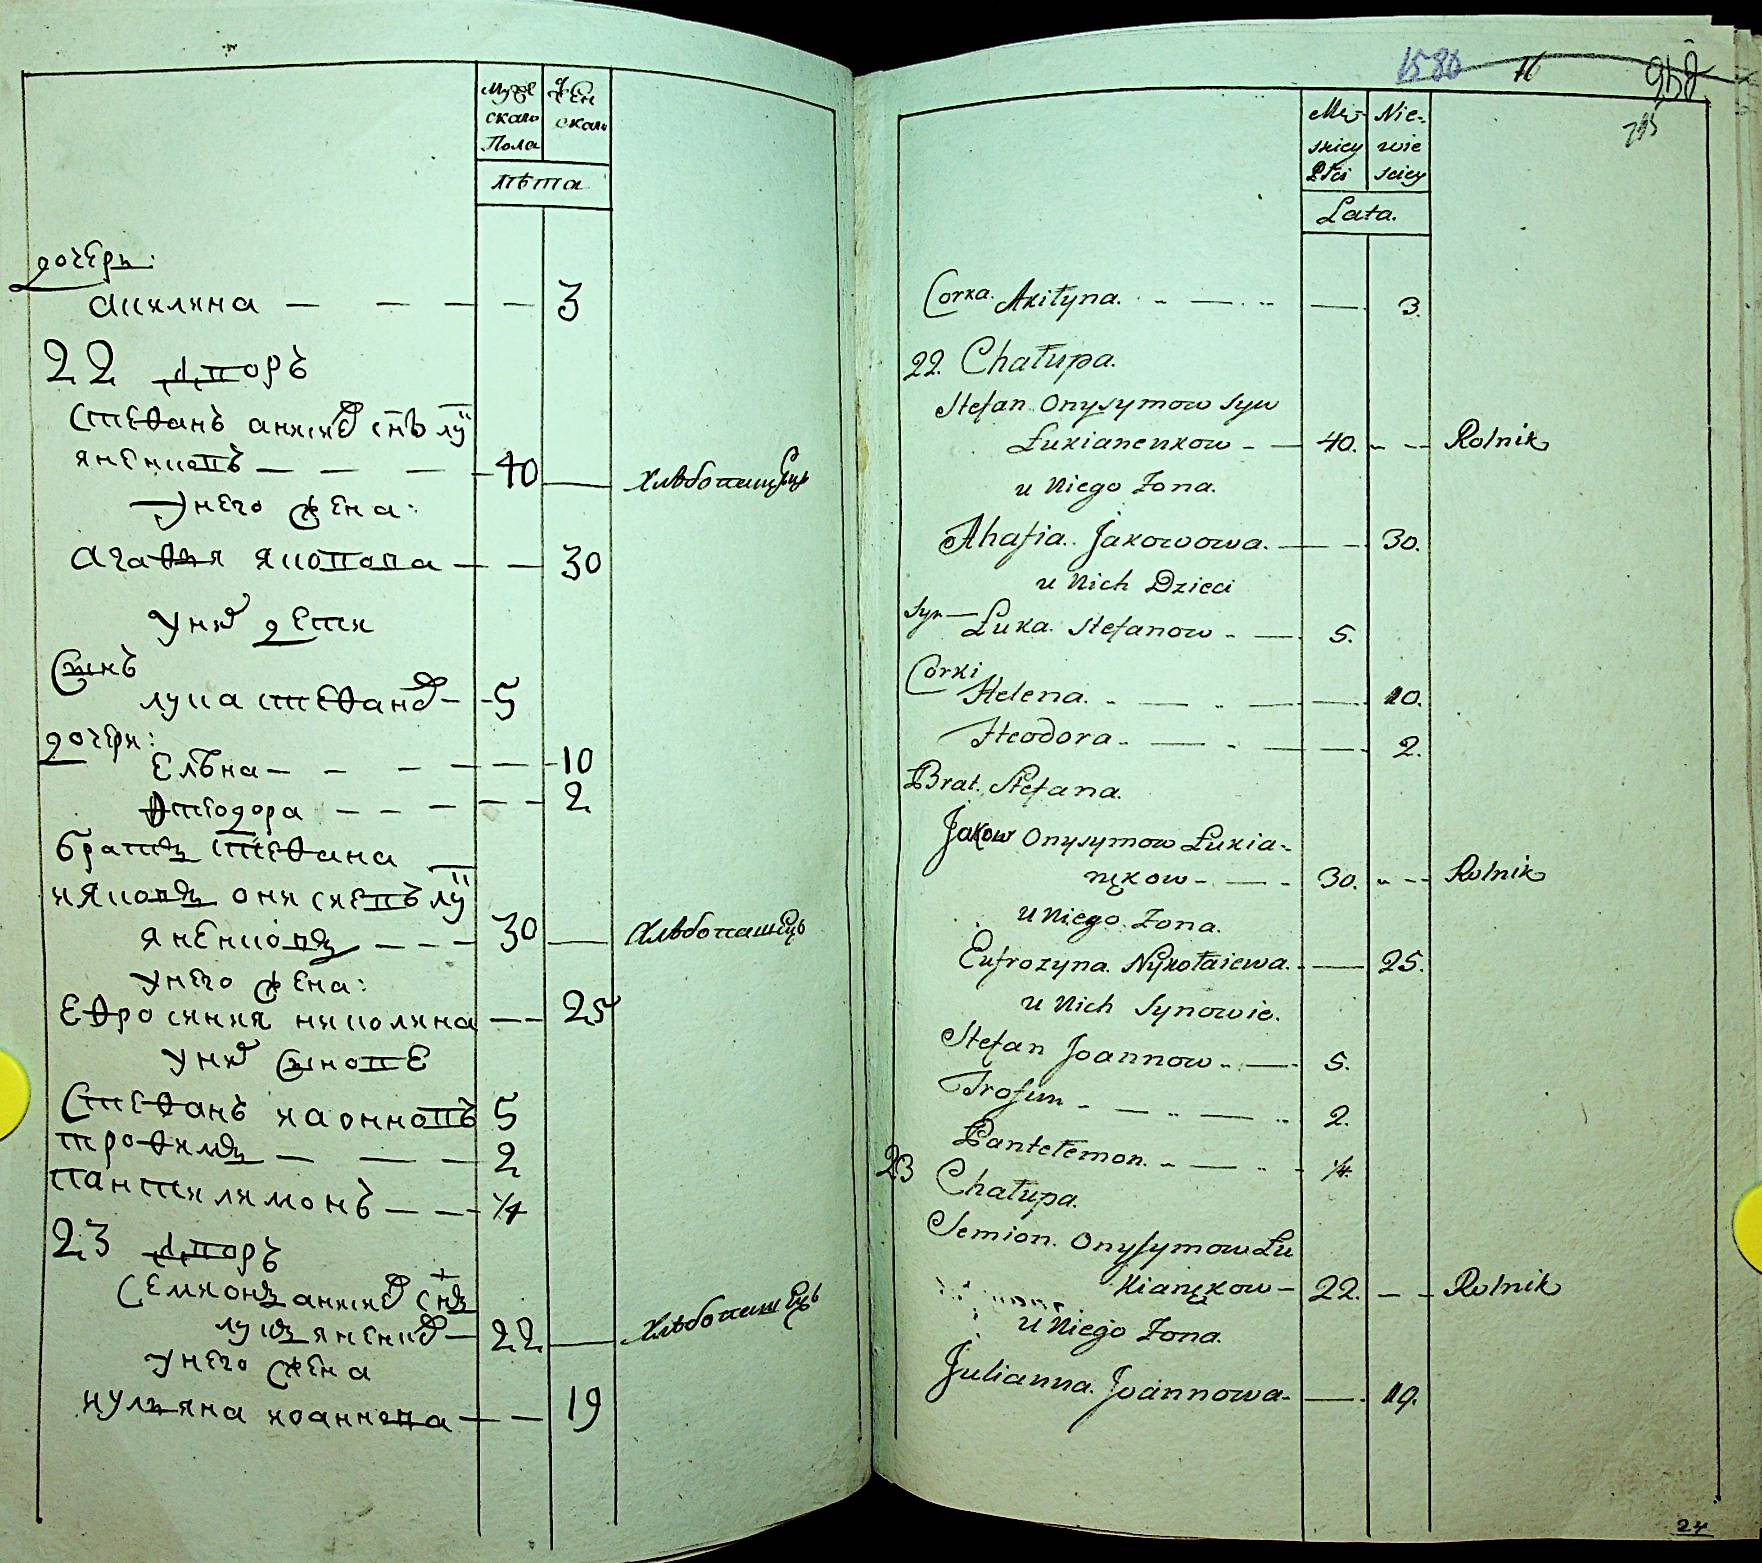 Муже
скаго
Пола
Жен
скаго
лѣта
дочери:
Акилина — — — — 3
22 дворъ
Стефанъ анисимовъ снъ лу
яненковъ — — — 40 хлѣбопашецъ
У него жена:
Агафия яковова — — 30
У них дети
Синъ
лука стефановъ — 5
дочери:
Елѣна — — — — 10
Фтеодора — — — — 2
братъ Стефана
ияковъ онисиевъ лу
яненковъ — — — 30 хлѣбопашецъ
У него жена:
Ефросиния николина — — 25
У них Синове
Стефанъ иаонновъ 5
трофимъ — — — 2
пантилимонъ — — 1/4
23 дворъ
Семионъ анисимовъ снъ
лукъяненков — 22 хлѣбопашецъ
У него жена
иулияна иоаннова — — 19
1580 16 958
Mę-
skiey
Płci
Nie-
wie
sciey
Lata.
Corka. Akiłyna. — — 3.
22. Chałupa.
Stefan Onysymow Syn
Łukianenkow — — 40. — — Rolnik
u Niego Zona.
Ahafia. Jakowowa. — — 30.
u Nich Dzieci
Syn — Łuka. Stefanow — — 5.
Corki
Helena. — — — 10.
Hteodora — — — — 2.
Brat. Stefana.
Jakow Onysymow Łukia-
nękow — — 30. — — Rolnik
u Niego Zona.
Eufrozyna. Nykołaiewa. — 25.
u Nich Synowie.
Stefan Joannow — — 5.
Trofim — — — 2.
Pantełemon. — — 1/4.
23
Chałupa.
Semion. Onysymow Łu
kianękow — 22. — — Rolnik
u Niego Zona.
Julianna. Joannowa — — 19.
24